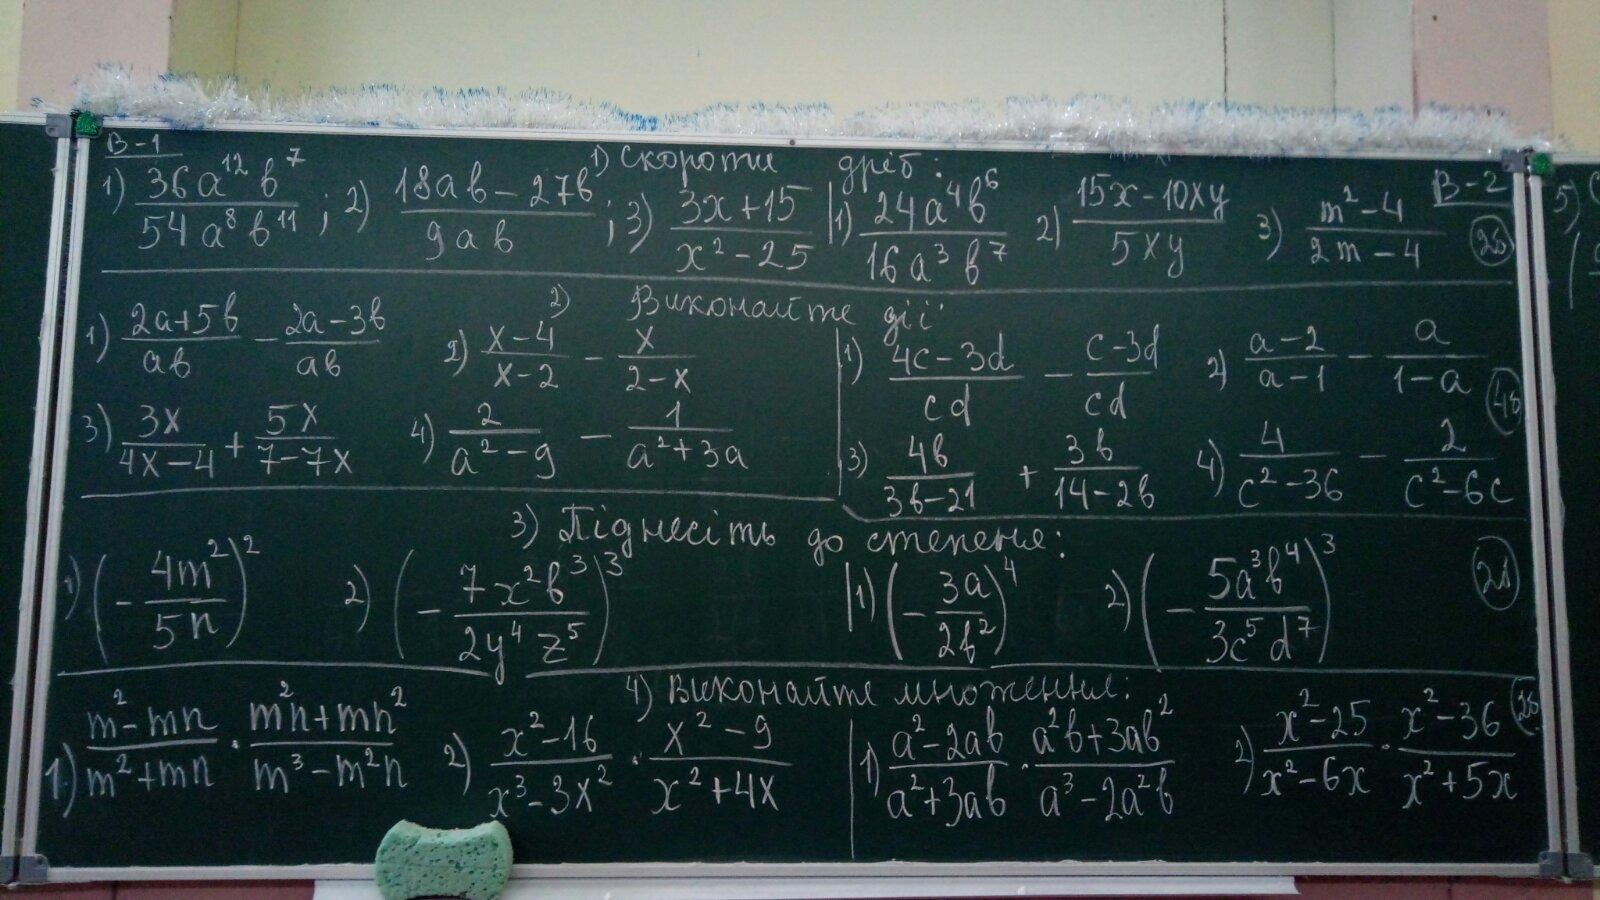 В-1 1) Скороти дріб: В-2
1) \frac{36a^{12}b^7}{54a^8b^{11}}; 2) \frac{18ab-27b}{9ab}; 3) \frac{3x+15}{x^2-25} | 1) \frac{24a^4b^6}{16a^3b^7} 2) \frac{15x-10xy}{5xy} 3) \frac{m^2-4}{2m-4} (2б)
2) Виконайте дії:
1) \frac{2a+5b}{ab} - \frac{2a-3b}{ab} 2) \frac{x-4}{x-2} - \frac{x}{2-x} | 1) \frac{4c-3d}{cd} - \frac{c-3d}{cd} 2) \frac{a-2}{a-1} - \frac{a}{1-a} (4б)
3) \frac{3x}{4x-4} + \frac{5x}{7-7x} 4) \frac{2}{a^2-9} - \frac{1}{a^2+3a} | 3) \frac{4b}{3b-21} + \frac{3b}{14-2b} 4) \frac{4}{c^2-36} - \frac{2}{c^2-6c}
3) Піднесіть до степеня:
1) (-\frac{4m^2}{5n})^2 2) (-\frac{7x^2b^3}{2y^4z^5})^3 | 1) (-\frac{3a}{2b^2})^4 2) (-\frac{5a^3b^4}{3c^5d^7})^3 (2б)
4) Виконайте множення:
1) \frac{m^2-mn}{m^2+mn} · \frac{mn+mn^2}{m^3-m^2n} 2) \frac{x^2-16}{x^3-3x^2} · \frac{x^2-9}{x^2+4x} | 1) \frac{a^2-2ab}{a^2+3ab} · \frac{a^2b+3ab^2}{a^3-2a^2b} 2) \frac{x^2-25}{x^2-6x} · \frac{x^2-36}{x^2+5x} (2б)
5)